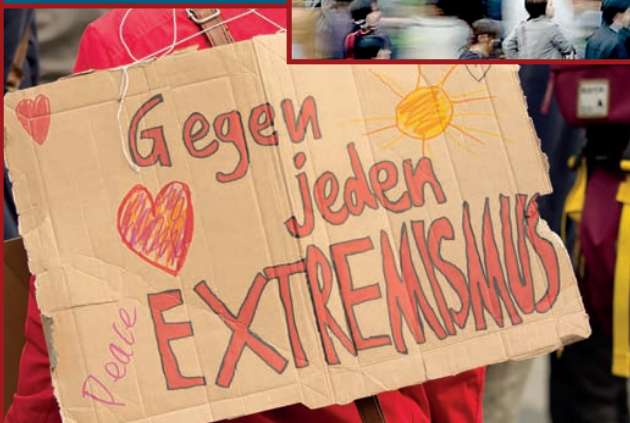 Gegen
jeden
EXTREMISMUS
Peace